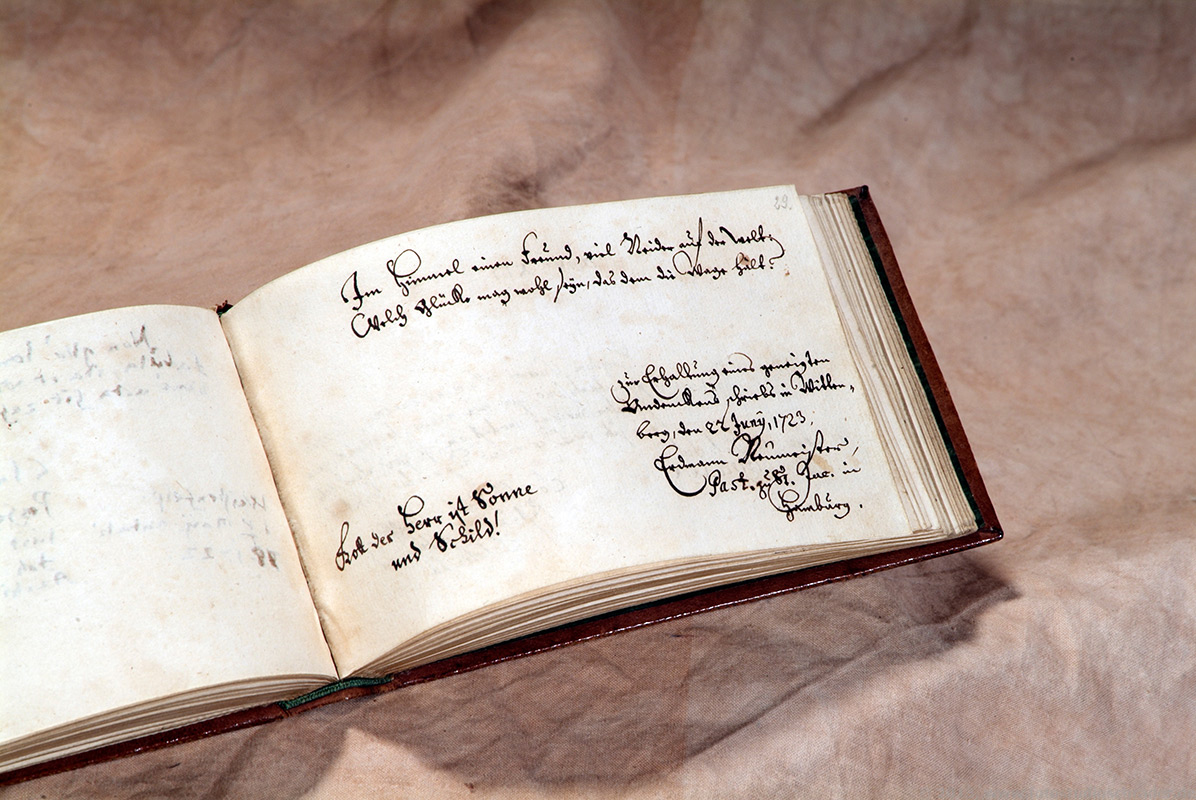 29.
Im Himmel einen Freund, viel Neider auf der Welt,
Welch Glücke mag wohl seyn, das dem die Wage hält?
Zur Erhaltung eines geneigten
Andenkens schriebs in Witten-
berg, den 22 Juny, 1723.
Erdmann Neumeister
Past. zu St. Jac. in
Hamburg.
Gott der Herr ist Sonne
und Schild!